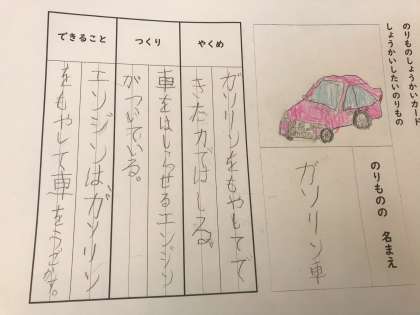 のりものしょうかいカード
しょうかいしたいのりもの
のりものの 名まえ
ガソリン車
やくめ
ガソリンをもやしてで
きた力ではしる。
つくり
車をはしらせるエンジン
がついている。
できること
エンジンはガソリン
をもやして車をうごかす。